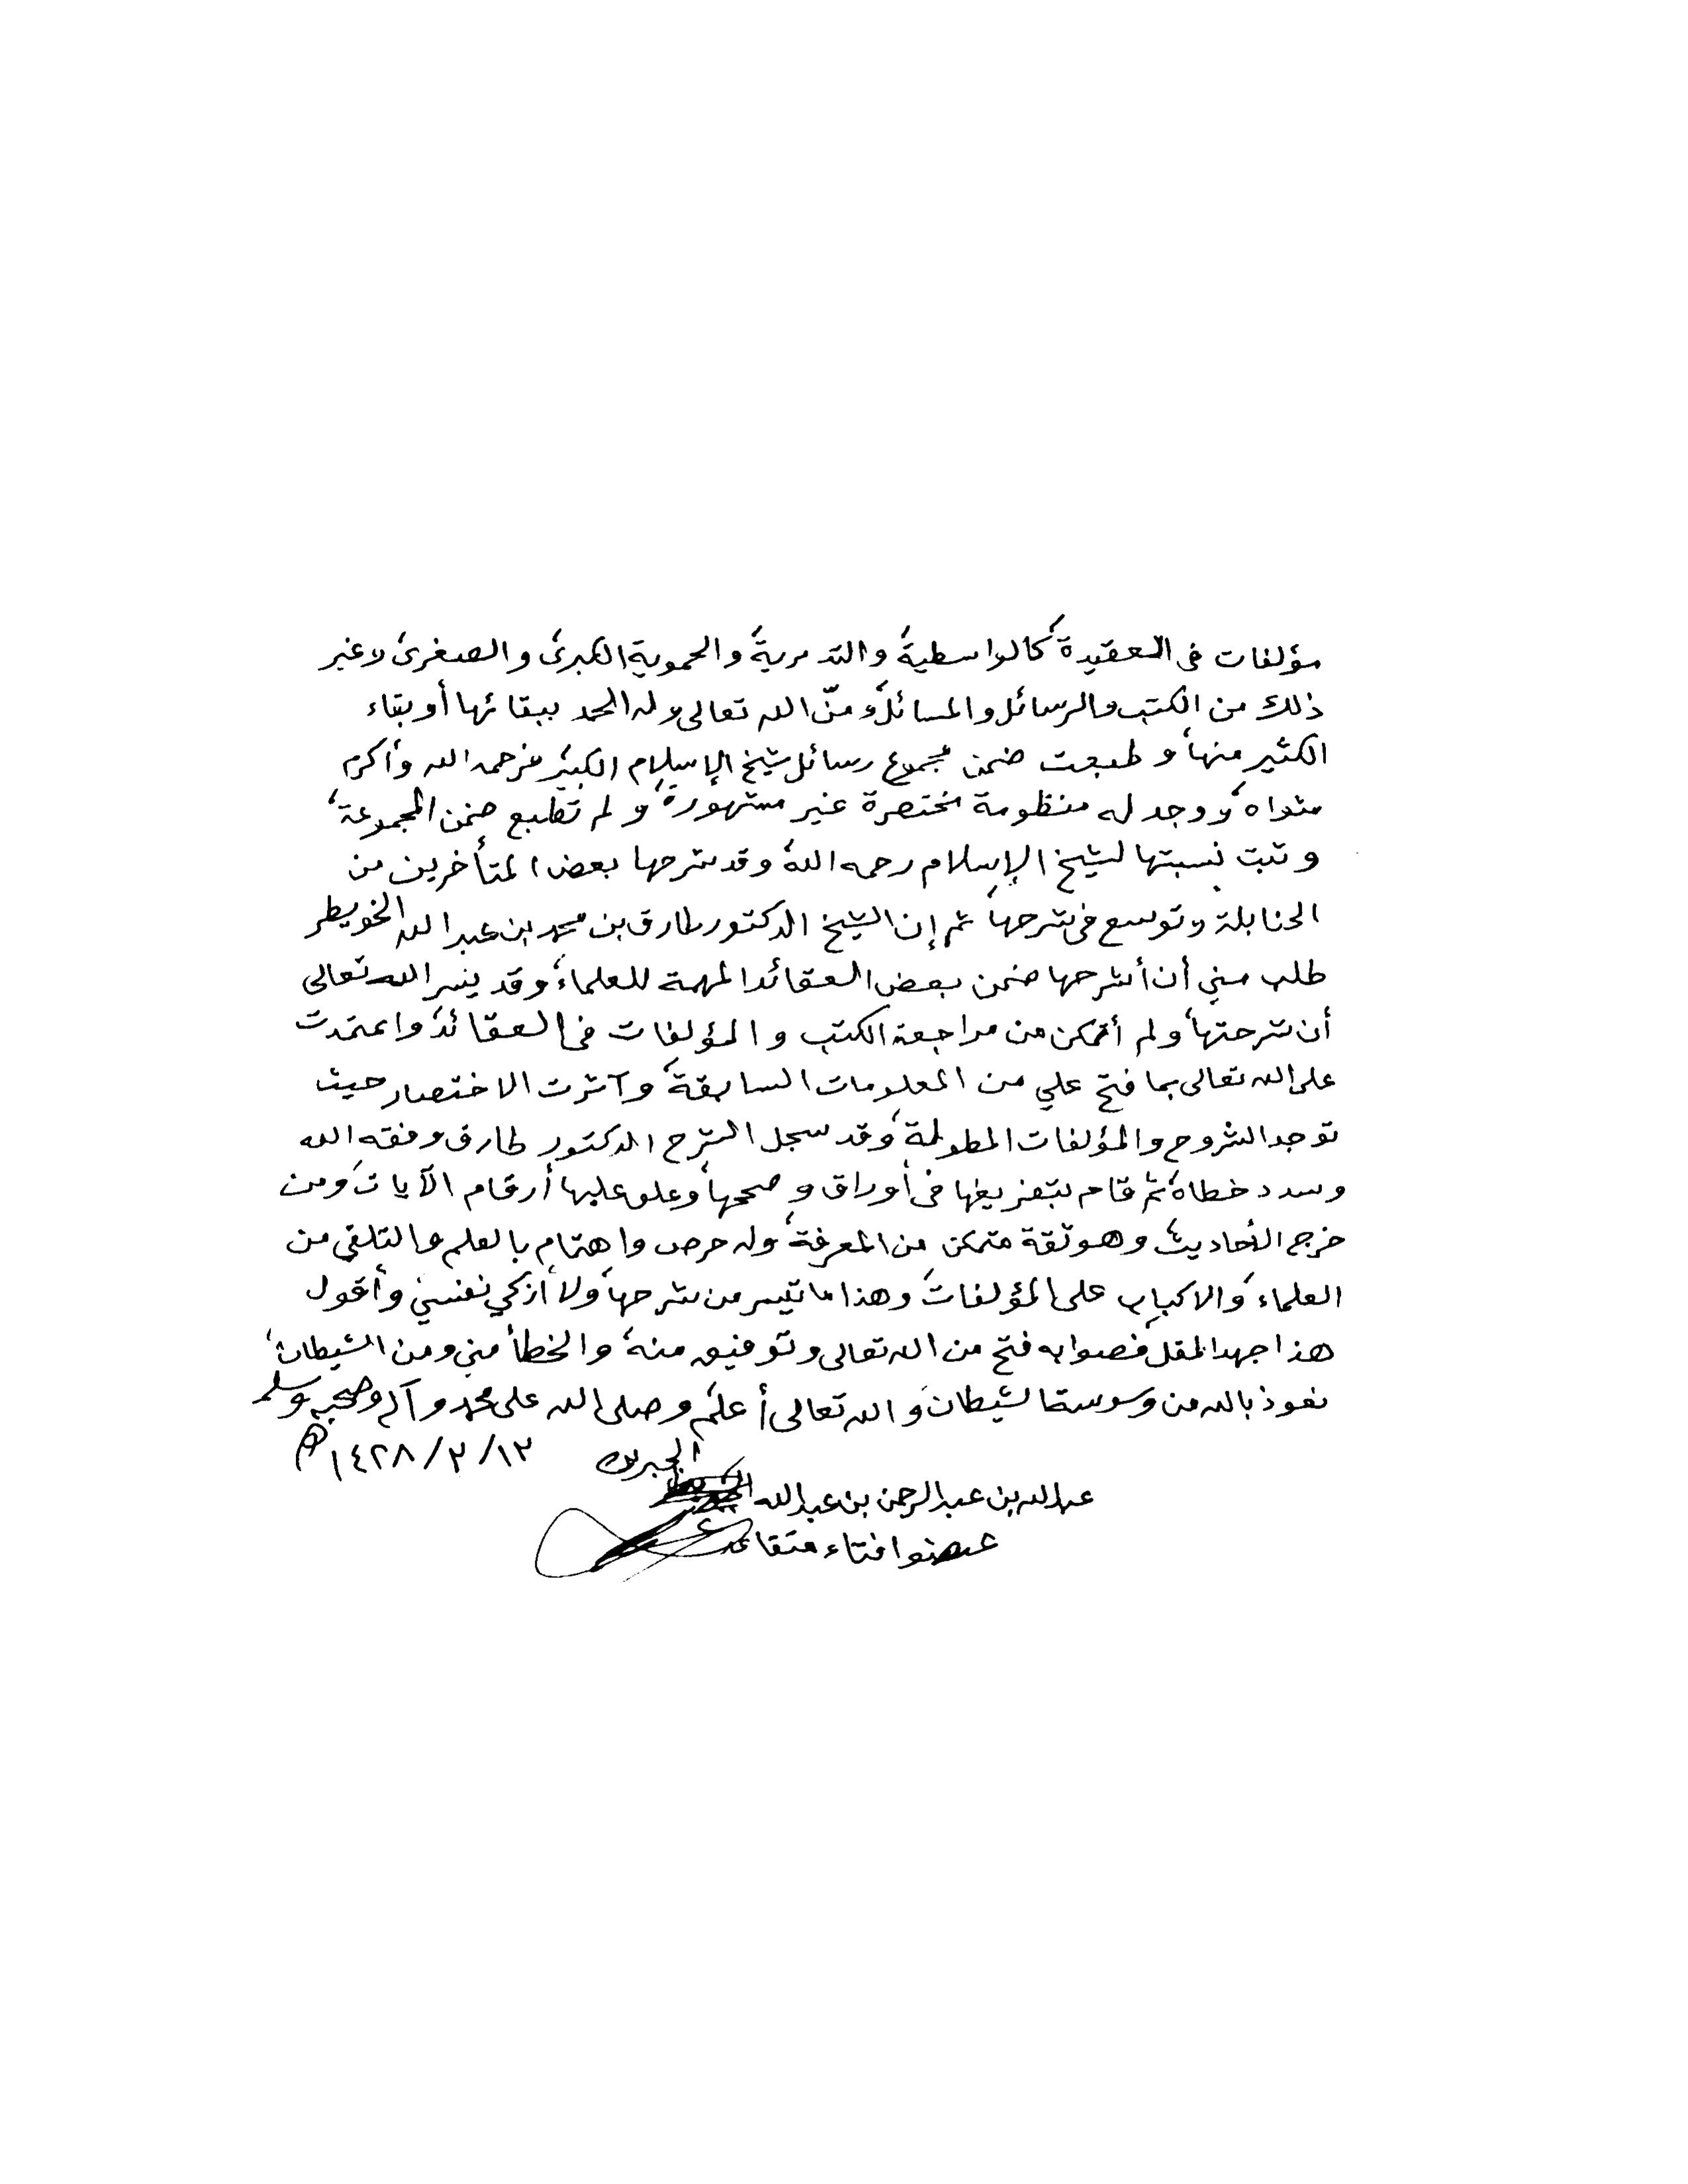 مؤلفات في العقيدة، كالواسطية، والتدمرية، والحموية الكبرى، والصغرى، وغير
ذلك من الكتب والرسائل والمسائل، ومنّ الله تعالى وله الحمد ببقائها أو بقاء
الكثير منها، وطبعت ضمن مجموع رسائل شيخ الإسلام الكبير، فرحمه الله وأكرم
مثواه، ووجد له منظومة مختصرة غير مشهورة، ولم تطبع ضمن المجموعة،
وثبت نسبتها لشيخ الإسلام رحمه الله، وقد شرحها بعض المتأخرين من
الحنابلة وتوسع في شرحها، ثم إن الشيخ الدكتور طارق بن محمد بن عبد الله الخويطر
طلب مني أن أشرحها ضمن بعض العقائد المهمة للعلماء، وقد يسر الله تعالى
أن شرحتها، ولم أتمكن من مراجعة الكتب والمؤلفات في العقائد، واعتمدت
على الله تعالى بما فتح علي من المعلومات السابقة، وآثرت الاختصار حيث
توجد الشروح والمؤلفات المطولة، وقد سجل الشرح الدكتور طارق وفقه الله
وسدد خطاه، ثم قام بتفريغها في أوراق وصححها، وعلق عليها أرقام الآيات، ومن
خرج الأحاديث، وهو ثقة متمكن من المعرفة، وله حرص واهتمام بالعلم والتلقي من
العلماء، والاكباب على المؤلفات، وهذا ما تيسر من شرحها، ولا أزكي نفسي، وأقول
هذا جهد المقل، فصوابه فتح من الله تعالى وتوفيق منه، والخطأ مني ومن الشيطان،
نعوذ بالله من وسوسة الشيطان، والله تعالى أعلم، وصلى الله على محمد وآله وصحبه وسلم
١٤٢٨/٢/١٢هـ
عبد الله بن عبد الرحمن بن عبد الله الجبرين
عضو افتاء متقاعد